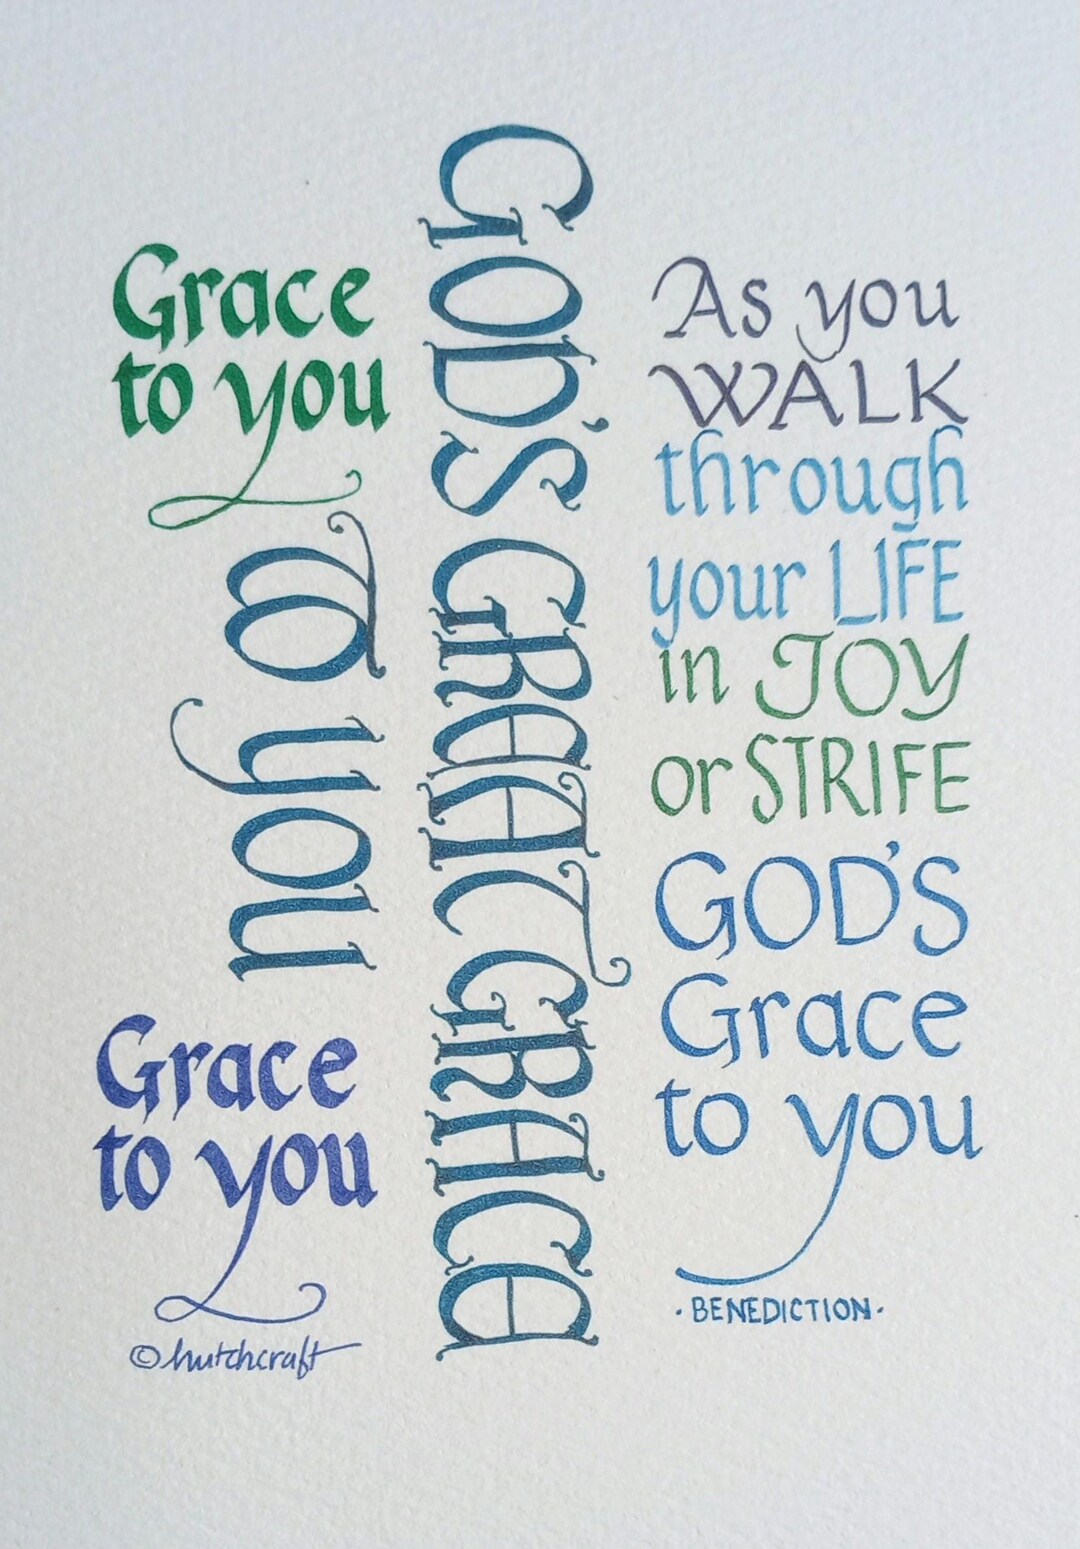 Grace
to you
GOD'S GREAT GRACE
TO YOU
Grace
to you
©hutchcraft
As you
WALK
through
your LIFE
in JOY
or STRIFE
GOD'S
Grace
to you
·BENEDICTION·